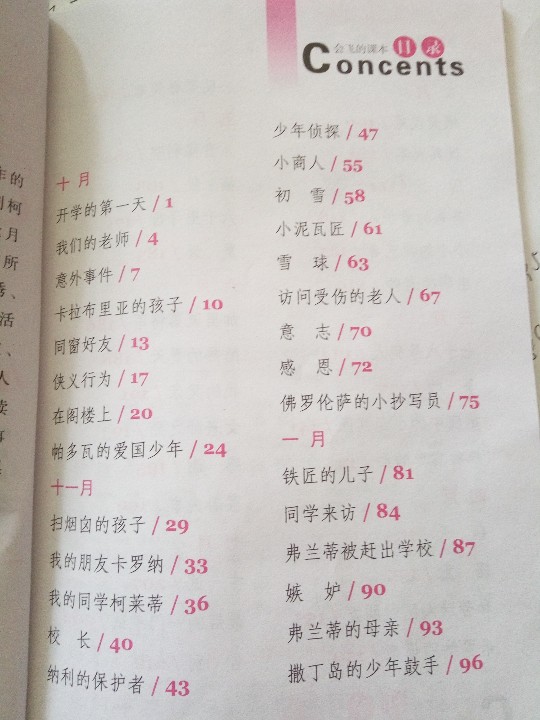 会飞的课本 目录
Concents
十月
开学的第一天/1
我们的老师/4
意外事件/7
卡拉布里亚的孩子/10
同窗好友/13
侠义行为/17
在阁楼上/20
帕多瓦的爱国少年/24
十一月
扫烟囱的孩子/29
我的朋友卡罗纳/33
我的同学柯莱蒂/36
校 长/40
纳利的保护者/43
少年侦探/47
小商人/55
初 雪/58
小泥瓦匠/61
雪 球/63
访问受伤的老人/67
意 志/70
感 恩/72
佛罗伦萨的小抄写员/75
一月
铁匠的儿子/81
同学来访/84
弗兰蒂被赶出学校/87
嫉 妒/90
弗兰蒂的母亲/93
撒丁岛的少年鼓手/96